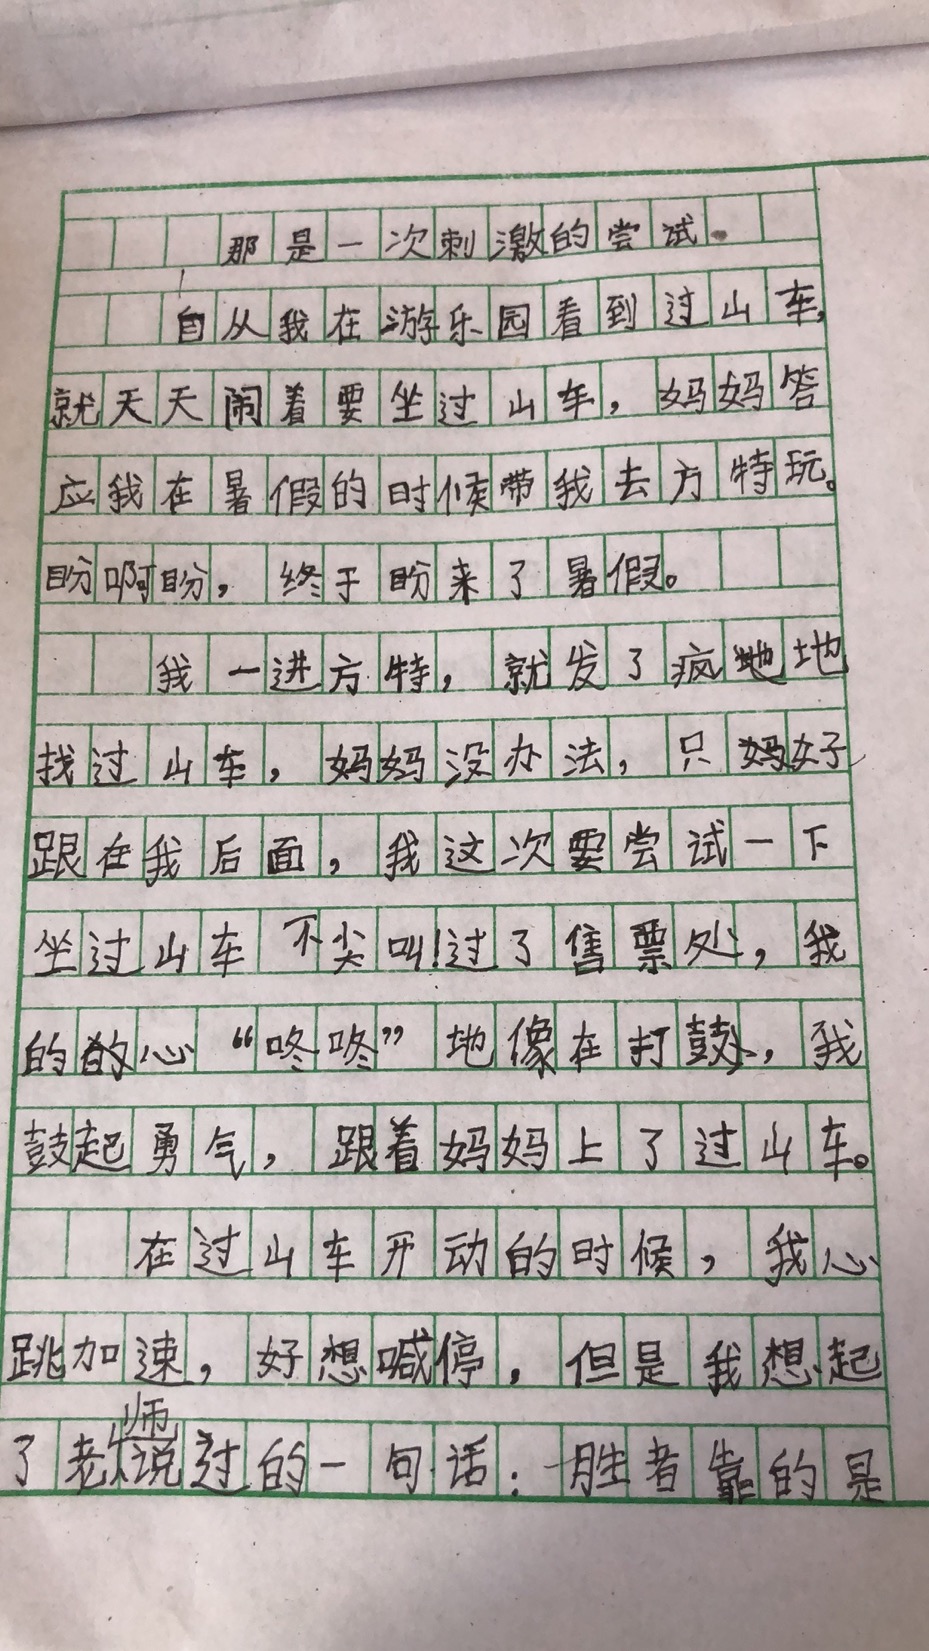 那是一次刺激的尝试。
自从我在游乐园看到过山车,
就天天闹着要坐过山车，妈妈答
应我在暑假的时候带我去方特玩。
盼啊盼，终于盼来了暑假。
我一进方特，就发了疯地地
找过山车，妈妈没办法，只妈好
跟在我后面，我这次要尝试一下
坐过山车不尖叫!过了售票处，我
的的心“咚咚”地像在打鼓，我
鼓起勇气，跟着妈妈上了过山车。
在过山车开动的时候，我心
跳加速，好想喊停，但是我想起
了老师说过的一句话：胜者靠的是